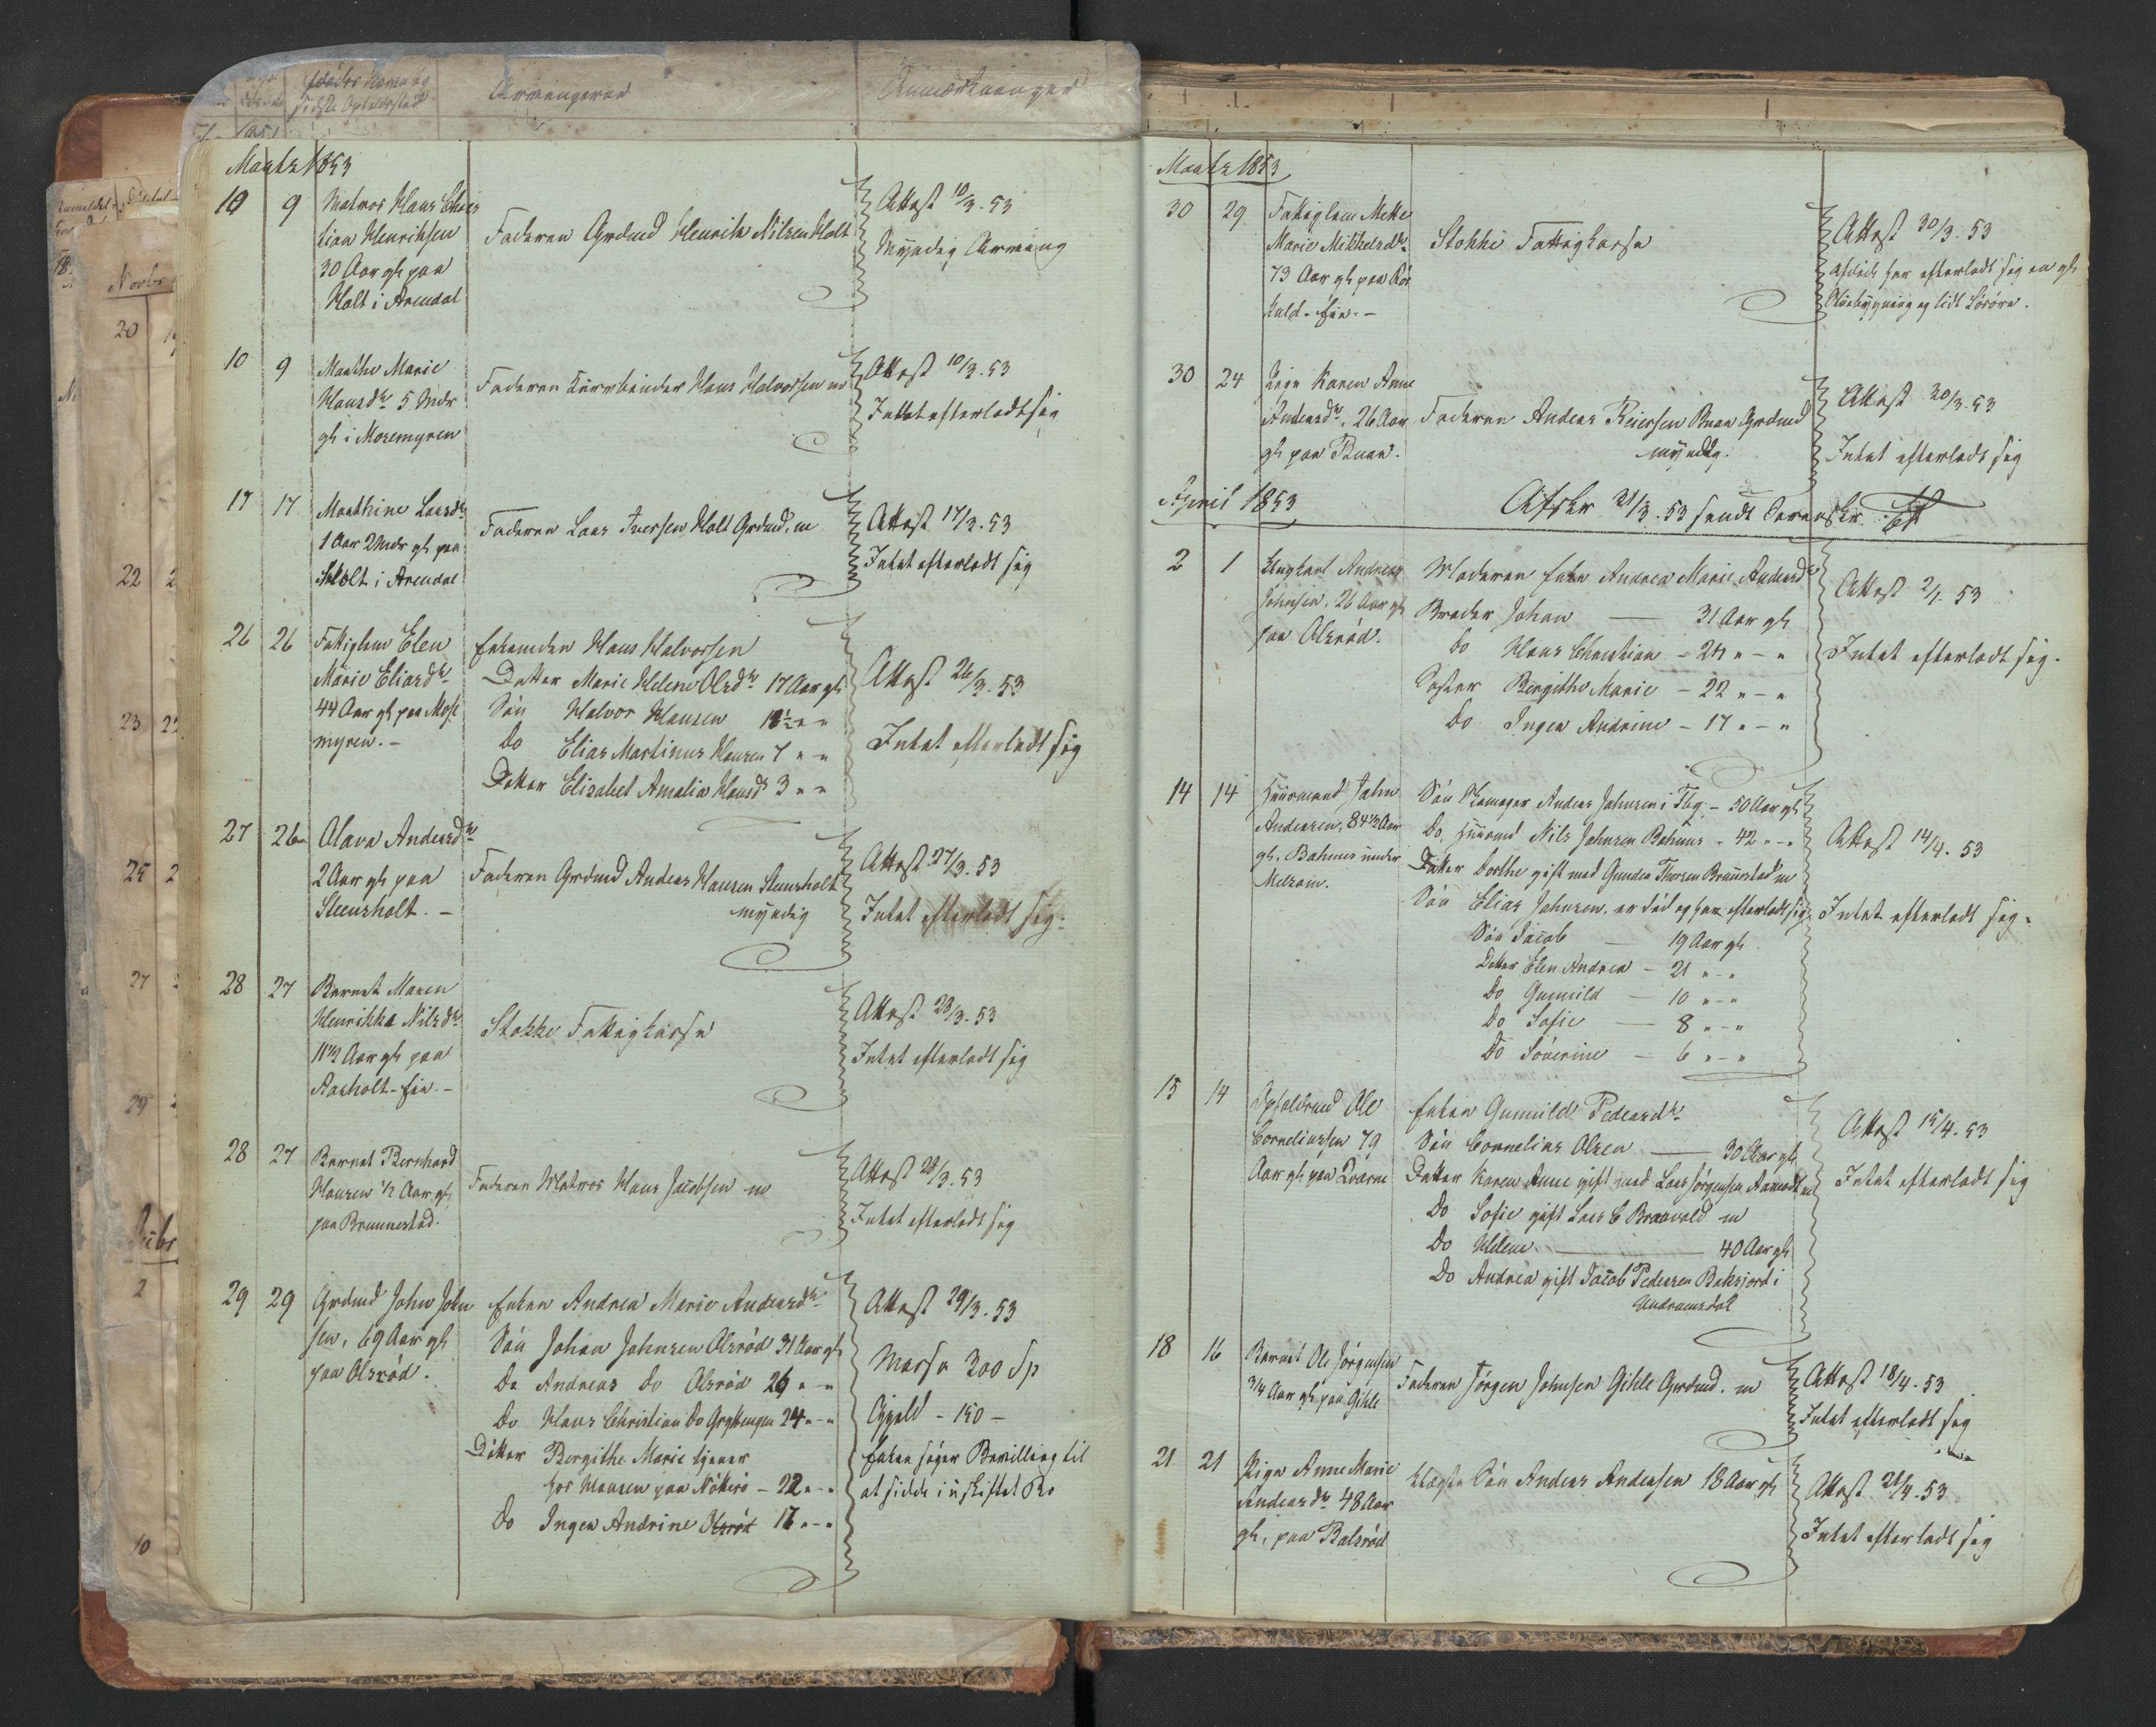 Afdødes Navn og
sidste Opholdssted
Arvingerne
Anmærkninger
Novbr
20
22
23
25
27
29
2
10
Marts 1853
10 9 Matros Hans Chris
tian Henriksen
30 Aar gl paa
Holt i Arendal
Faderen Grdmd Henrik Nilsen Holt
Attest 10/3. 53
Myndig Arving
10 9 Marthe Marie
Hansdtr 5 Mdr
gl i Mosemyren
Faderen Hans Halvorsen m
Attest 10/3. 53
Intet efterladt sig
17 17 Marthine Larsdtr
1 Aar 2 Mdr gl paa
Holt i Arendal
Faderen Lars Iversen Holt Grdmd. m
Attest 17/3. 53
Intet efterladt sig
26 26 Fattiglem Elen
Marie Eliasdtr
44 Aar gl paa Mose
myren. -
Enkemden Hans Halvorsen
Datter Marie Helene Olsdtr 17 Aar gl
Søn Halvor Hansen 11½ " "
Do Elias Martinus Hansen 7 " "
Datter Elisabet Amalia Hansdr 3 " "
Attest 26/3. 53
Intet efterladt sig
27 26 Olava Andersdtr
2 Aar gl paa
Steensholt. -
Faderen Grdmd Anders Hansen Steensholt
myndig
Attest 27/3. 53
Intet efterladt sig.
28 27 Barnet Maren
Henrikke Nilsdtr
11½ Aar gl paa
Aasholt-Eie. -
Stokke Fattigkasse
Attest 28/3. 53
Intet efterladt sig
28 27 Barnet Bernhard
Hansen ½ Aar gl
paa Brunnestad.
Faderen Matros Hans Jacobsen m
Attest 28/3. 53
Intet efterladt sig
29 29 Grdmd John John
sen, 69 Aar gl
paa Olsrød.
Enken Andrea Marie Andersdtr
Søn Johan Johnsen Olsrød 31 Aar gl
Do Andreas Do Olsrød 26 " - "
Do Hans Christian Do 24 " - "
Datter Bergithe Marie tjener
hos Hansen paa Nøtterø - 22 " - "
Do Ingen Andrine Olsrød 17 " - "
Attest 29/3. 53
Massa 300 Sp
Gjeld - 150 -
Enken søger Bevilling til
at sidde i uskiftet Bo
Marts 1853
30 29 Fattiglem Mette
Marie Mikkelsdtr
73 Aar gl paa Rør
kold-Eie. -
Stokke Fattigkasse
Attest 30/3. 53
Afdøde har efterladt sig en gl
Huusbygning og lidt Løsøre.
30 24 Pige Karen Anne
Andersdtr. 26 Aar
gl paa Buan.
Faderen Anders Reiersen Buan Grdmd
myndig.
Attest 30/3. 53
Intet efterladt sig
April 1853
Afskr 31/3. 53 sendt Sorenskr.
2 1 Ungkarl Andreas
Johnsen, 26 Aar gl
paa Olsrød.
Moderen Enke Andrea Marie Andersdtr
Broder Johan — 31 Aar gl
Do Hans Christian - 24 " - "
Søster Bergithe Marie - 22 " - "
Do Ingen Andrine - 17 " - "
Attest 2/4. 53
Intet efterladt sig.
14 14 Huusmand John
Andersen, 84½ Aar
gl. Bahuus under
Melsom.
Søn Skomager Anders Johnsen i Tbg. - 50 Aar gl
Do, Huusmd Nils Johnsen Bahuus - 42 " - "
Datter Dorthe gift med Gunder Thorsen Brunnstad m
Søn Elias Johnsen, er død og har efterladt sig
Søn Jacob — 19 Aar gl
Datter Elen Andrea - 21 " - "
Do Gunnild - 10 " - "
Do Sofie — 8 " - "
Do Séverine - 6 " - "
Attest 14/4. 53
Intet efterladt sig.
15 14 Opholdsmd Ole
Corneliussen 79
Aar gl paa Qvarne
Enken Gunnild Pedersdtr
Søn Cornelius Olsen — 30 Aar gl
Datter Karen Anne gift med Lars Jørgensen m
Do Sofie gift Lars C Braavold m
Do Helene — 40 Aar gl
Do Andrea gift Jacob Pedersen i
Undrumsdal
Attest 15/4. 53
Intet efterladt sig
18 16 Barnet Ole Jørgensen
3/4 Aar gl paa Gihle
Faderen Jørgen Johnsen Gihle Grdmd. m
Attest 18/4. 53
Intet efterladt sig
21 21 Pige Anne Marie
Andersdtr 48 Aar
gl, paa Balsrød
Uægte Søn Anders Andersen 18 Aar gl
Attest 21/4. 53
Intet efterladt sig